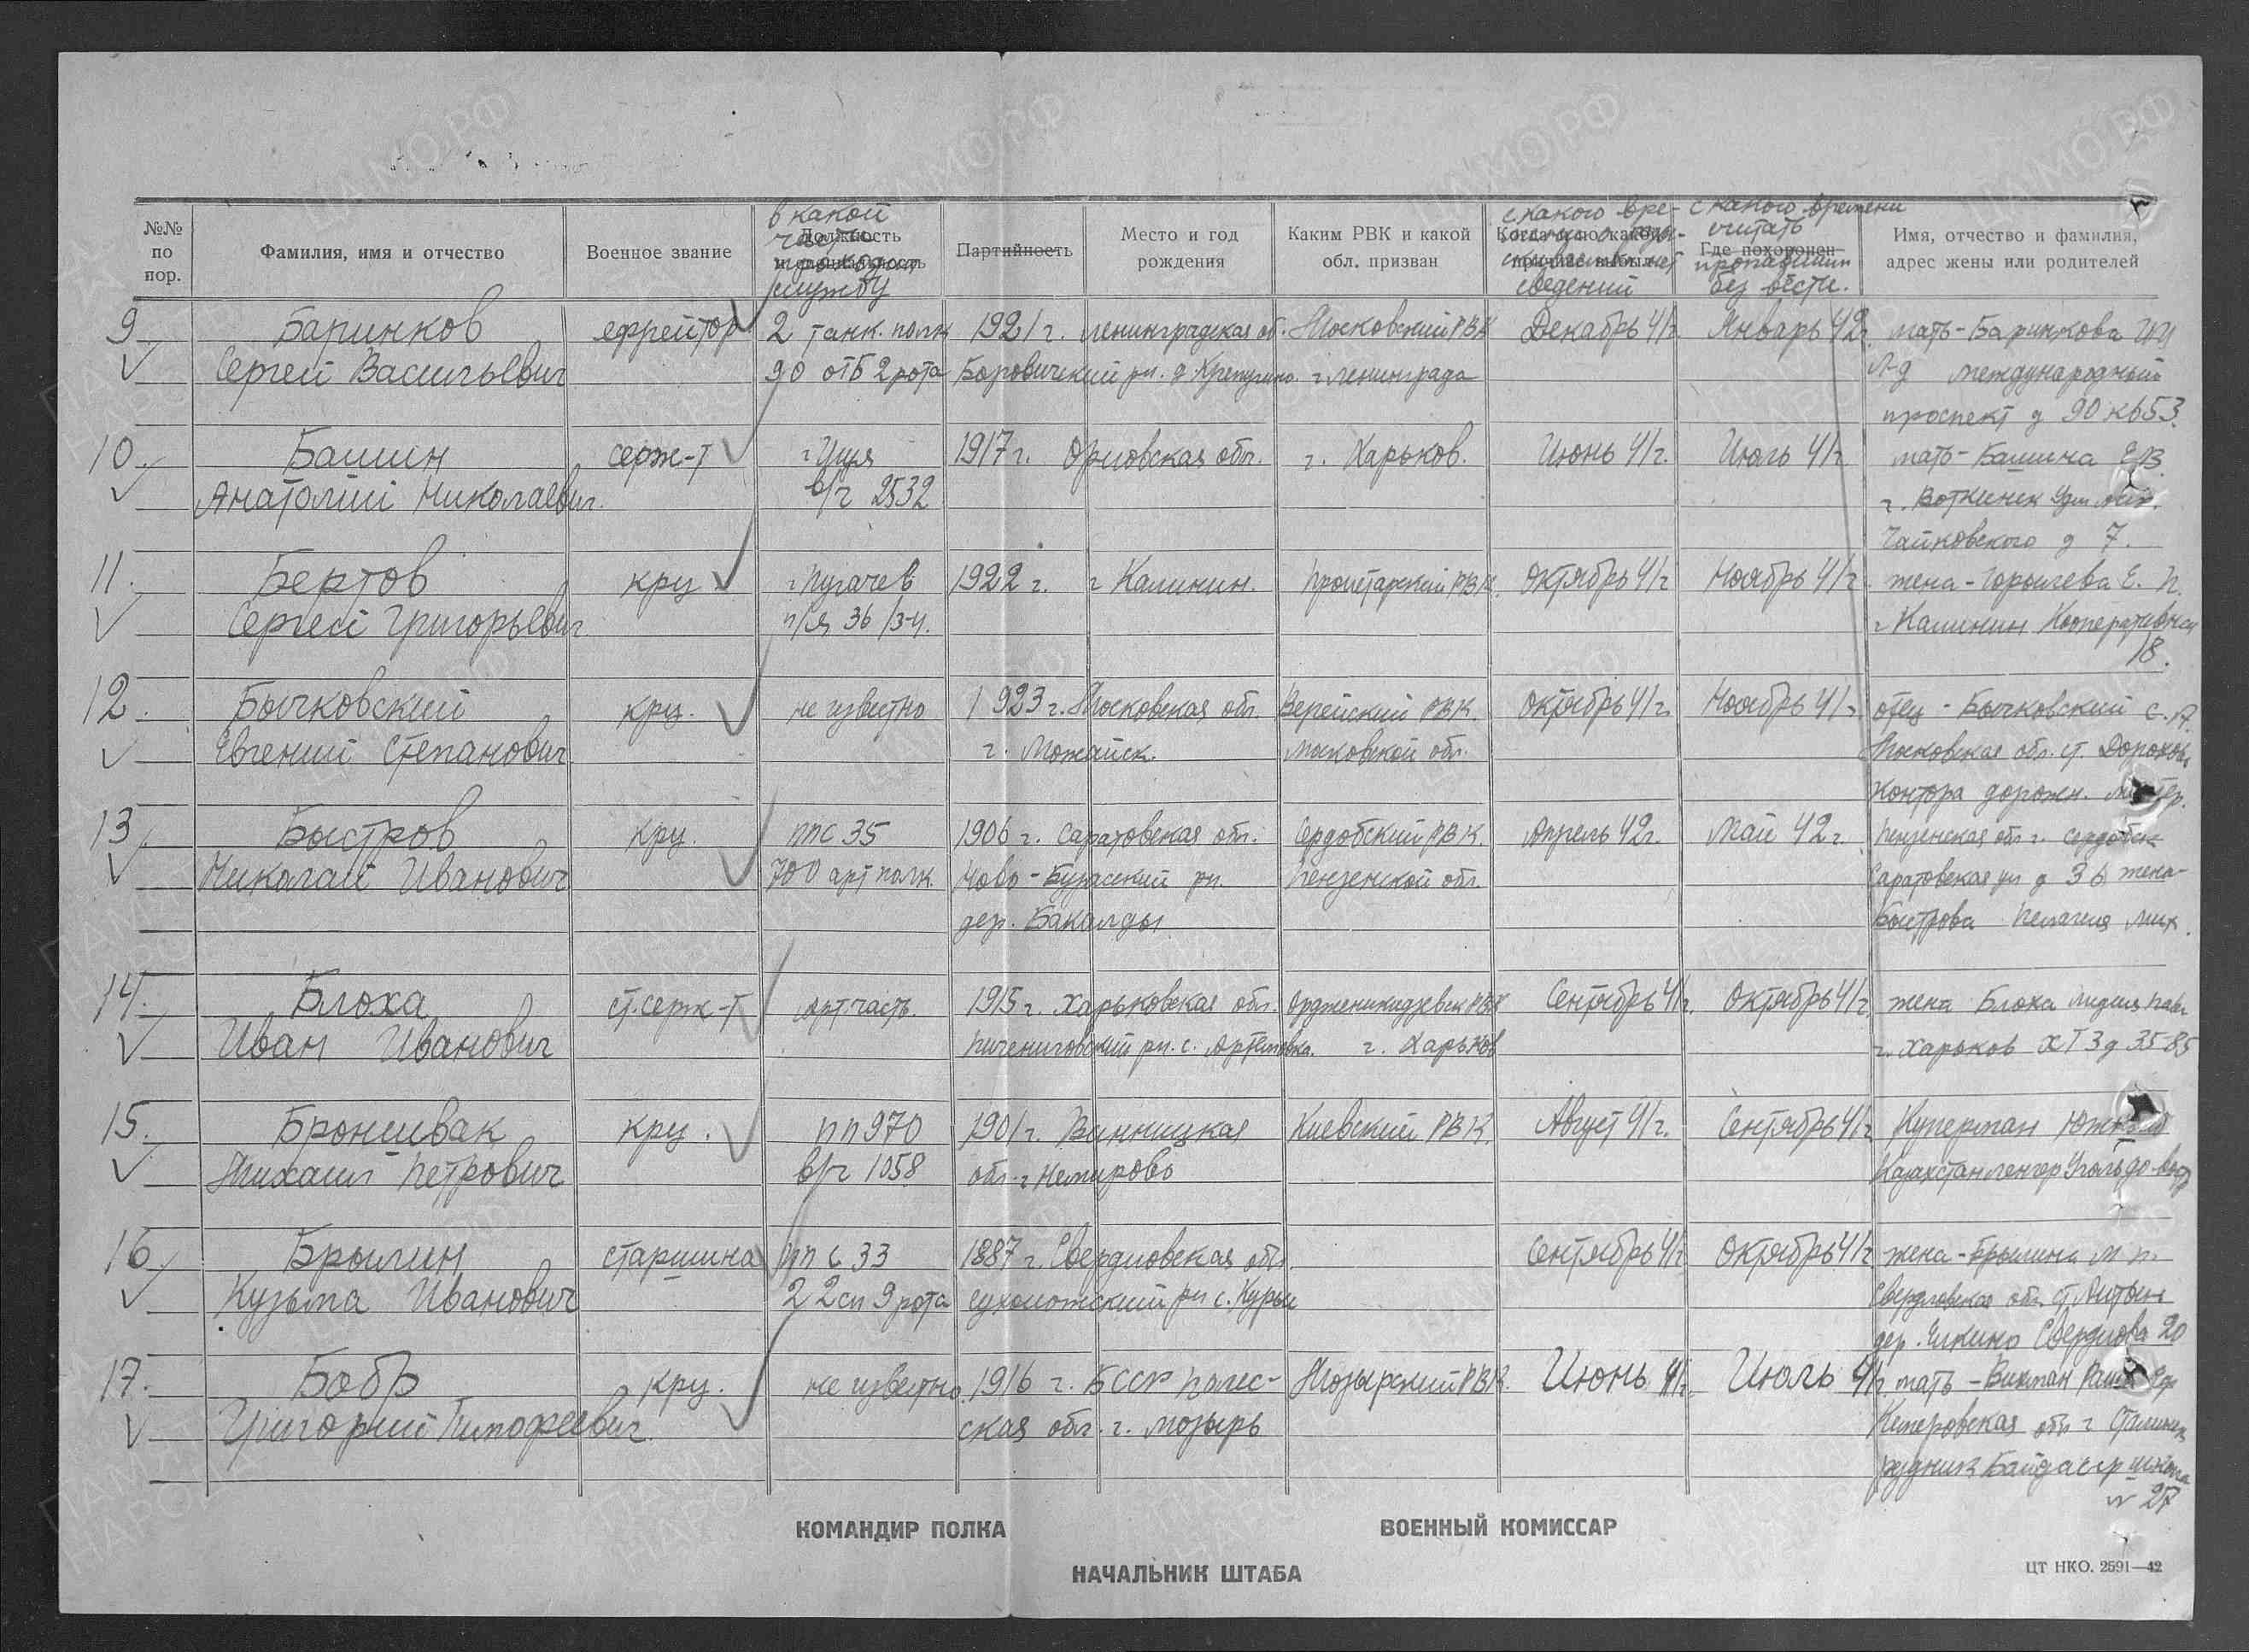 №№ по пор.
Фамилия, имя и отчество
Военное звание
Должность и специальность
в какой части проходил службу
Партийность
Место и год рождения
Каким РВК и какой обл. призван
Когда и по какой причине выбыл
с какого времени о нет сведений
Где похоронен
с какого времени считать пропавшим без вести.
Имя, отчество и фамилия, адрес жены или родителей
9 Баринков ефрейтор 2 танк. полк 1921 г. Ленинградская об. Московский РВК Декабрь 41г. Январь 42г. мать - Баринкова
Сергей Васильевич 90 отб 2 рота Боровичский рн. д г. Ленинграда Л-д международный
проспект д 90 кв 53.
10. Башин серж-т г Уция 1917 г. Орловская обл. г. Харьков. Июнь 41г. Июль 41г мать - Башина Е.В.
Анатолий Николаевич. в/ч 2532 г. Воткинск Удм
Чайковского д 7.
11. Бертов кр-ц г Пугачев 1922 г. г Калинин. Пролетарский РВК. Октябрь 41г Ноябрь 41г. жена - Горячева Е. П.
Сергей Григорьевич п/я 36 /3-4. г Калинин Кооперативная
18.
12. Бычковский кр-ц. не известно 1923 г. Московская обл. Верейский РВК. Октябрь 41г. Ноябрь 41г отец - Бычковский С.А.
Евгений Степанович г. Можайск. Московской обл. Московская обл. ст. Дорохово
Контора дорожн. мастер.
13. Быстров кр-ц. ппс 35 1906 г. Саратовская обл. Сердобский РВК. Апрель 42г. Май 42 г. Пензенская обл г. Сердобск
Николай Иванович 700 арт полк. Ново-Бурасский рн. Пензенской обл. Саратовская ул д 36 жена-
дер. Бакалды Быстрова Пелагея Мих.
14. Блоха ст. серж-т арт часть. 1915 г. Харьковская обл. Орджоникидзевск РВК Сентябрь 41г. Октябрь 41г. жена Блоха Лидия Павл
Иван Иванович Печениговский рн. с. Артемовка. г. Харьков г. Харьков ХТЗ д 35-85
15. Броншвак кр-ц. пп 970 1901г. Винницкая Киевский РВК. Август 41г. Сентябрь 41г Куперман
Михаил Петрович в/ч 1058 обл. г Немирово Казахстан Ленгер
16. Брылин старшина пп с 33 1887 г. Свердловская обл. Сентябрь 41г Октябрь 41г жена - Брылина М П.
Кузьма Иванович 22 сп 9 рота Сухоложский рн с. Курьи Свердловская обл. ст
дер. Свердлова 20
17. Бобр кр-ц. не известно. 1916 г. БССР Полес- Мозырский РВК. Июнь 41г. Июль 41г мать -
Григорий Тимофеевич. ская обл. г. Мозырь Кемеровская обл г Сталинск
рудник Байдаевский школа
№ 27
КОМАНДИР ПОЛКА
ВОЕННЫЙ КОМИССАР
НАЧАЛЬНИК ШТАБА
ЦТ НКО. 2591—42